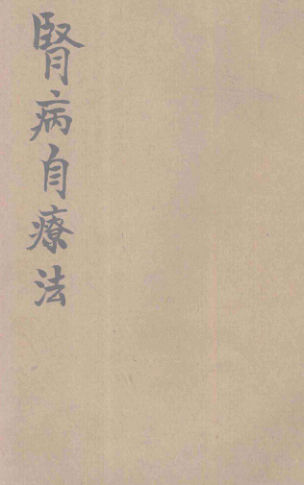 腎病自療法